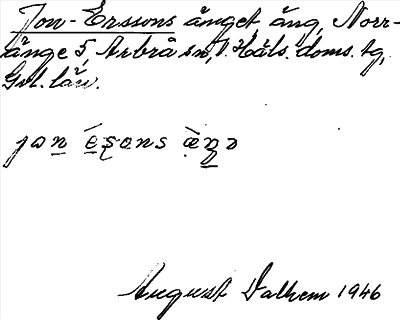 Jon-Erssons änget, äng, Norr-
änge 5, Arbrå sn, V. Häls. doms. tg,
Gvl. län.
jon ésons ὰŋə
August Dalhem 1946